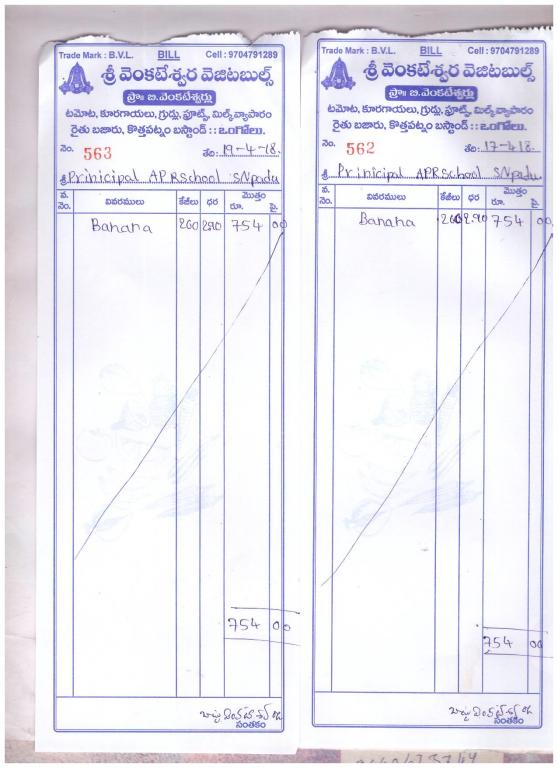 Trade Mark : B.V.L. BILL Cell : 9704791289
శ్రీ వెంకటేశ్వర వెజిటబుల్స్
ప్రొః బి.వెంకటేశ్వర్లు
టమోట, కూరగాయలు, గ్రుడ్లు, ఫ్రూట్స్, మిల్క్ వ్యాపారం
రైతు బజారు, కొత్తపట్నం బస్టాండ్ :: ఒంగోలు.
నెం. 563 తేది: 19-4-18.
శ్రీ Prinicipal APRSchool SNpadu
వ. నెం. వివరములు కేజీలు ధర మొత్తం రూ. పై.
Banana 260 2.90 754 00
754 00
సంతకం
Trade Mark : B.V.L. BILL Cell : 9704791289
శ్రీ వెంకటేశ్వర వెజిటబుల్స్
ప్రొః బి.వెంకటేశ్వర్లు
టమోట, కూరగాయలు, గ్రుడ్లు, ఫ్రూట్స్, మిల్క్ వ్యాపారం
రైతు బజారు, కొత్తపట్నం బస్టాండ్ :: ఒంగోలు.
నెం. 562 తేది: 17-4-18.
శ్రీ Prinicipal APRSchool SNpadu
వ. నెం. వివరములు కేజీలు ధర మొత్తం రూ. పై.
Banana 260 2.90 754 00
754 00
సంతకం